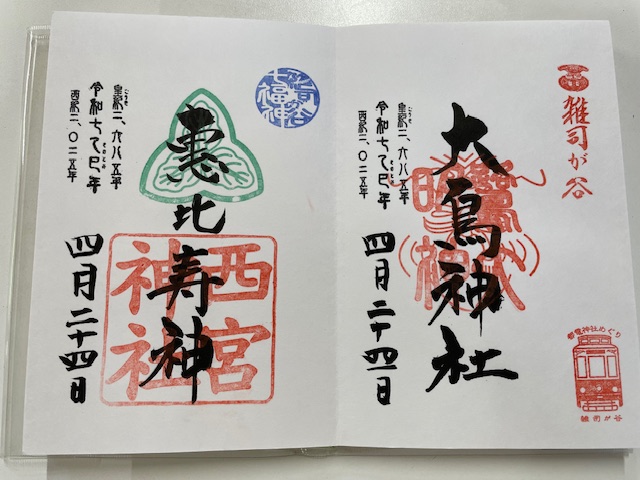 雑司が谷
大鳥神社
皇紀二、六八五年
令和七乙巳年
西暦二、〇二五年
四月二十四日
都電神社めぐり
雑司が谷
恵比寿神
西宮
神社
皇紀二、六八五年
令和七乙巳年
西暦二、〇二五年
四月二十四日